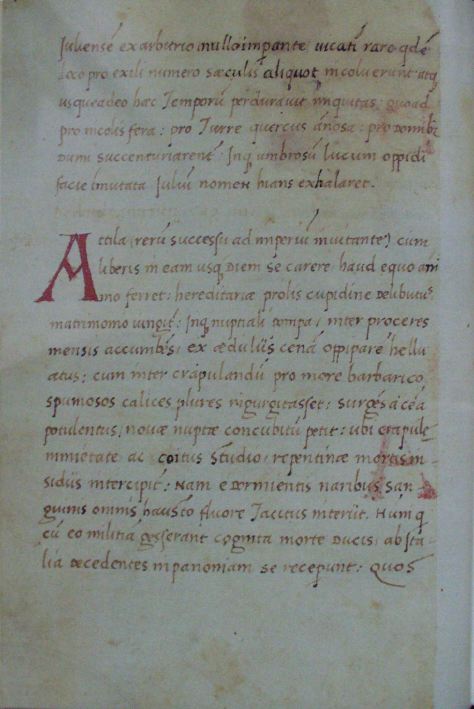 Juliensē ex arbitrio nullo impante, uicatī raro qdē
loco pro exili numero sæculis aliquot incoluerunt atq
usqueadeo hac Temporū perdurauit iniquitas: quoad
pro incolis fera: pro Turre quercus ānosa: pro domibꝫ
Dumi succenturiarent̄ Inq umbrosū lucum oppidi
facie īmutata Juliū nomen hians exhalaret.
Attila (rerū successu ad imperiū inuitante) cum
liberis in eam usq Diem se carere haud equo ani
mo ferret: hereditariæ prolis cupidine Delibutus
matrimonio iungit: Inq nuptiali pompa, inter proceres
mensis accumbēs, ex æduliis cenā opipare hellu
atus: cum inter crapulandū pro more barbarico
spumosos calices plures īgurgitasset: surgēs a cēa
potulentus, nouæ nuptæ concubitū petit: ubi crapulæ
immietate ac coitus studio, repentinæ mortis in
sidiis intercipit̄: Nam e Dormientis naribus san
guinis omnis hausto fluore Tacitus interiit. Hum q
cū eo militiā gesserant cognita morte Ducis, ab ita
lia decedentes in panoniam se recepunt: Quos